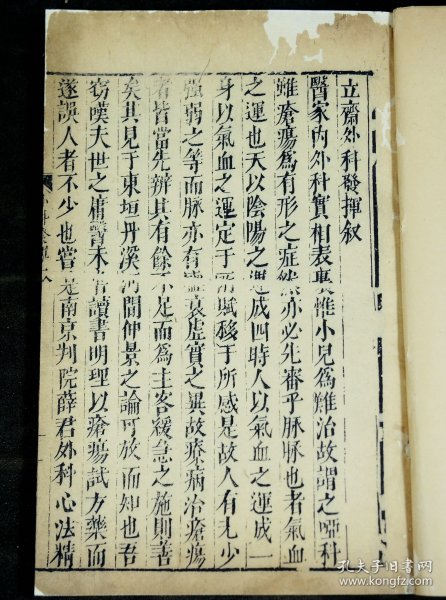 立齋外科發揮叙
醫家内外科實相表裏惟小兒為難治故謂之啞科
雖瘡瘍為有形之症然亦必先審乎脉脉也者氣血
之運也天以陰陽之運成四時人以氣血之運成一
身以氣血之運定于所賦移于所感是故人有尢少
強弱之等而脉亦有盛衰虚實之異故療病治瘡瘍
者皆當先辨其有餘不足而為主客緩急之施則善
矣其見于東垣丹溪河間仲景之論可放而知也吾
竊嘆夫世之庸醫未嘗讀書明理以瘡瘍試方藥而
遂誤人者不少也嘗是南京判院薛君外科心法精
孔夫子旧书网
www.kongfz.com